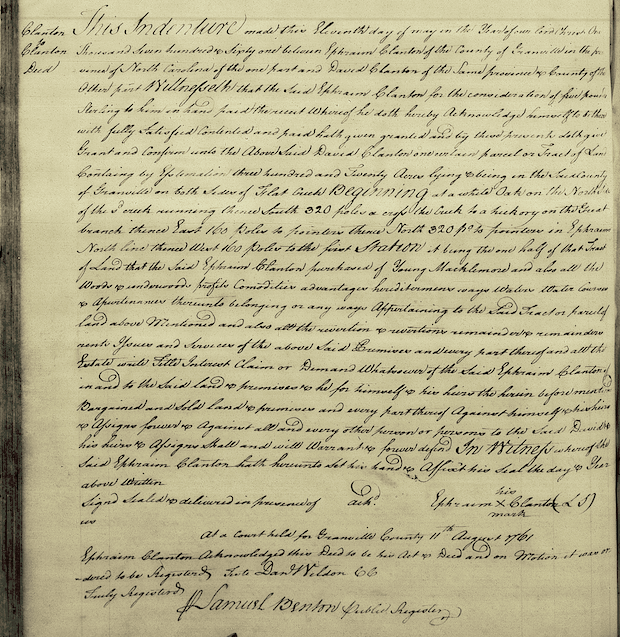 Clanton
to
Clanton
Deed
This Indenture made this Eleventh day of may in the Year of our lord Christ One
thousand Seven hundred & Sixty one between Ephraim Clanton of the County of Granville in the pro
vence of North Carolina of the one part and David Clanton of the Same province & County of the
Other part Witnesseth that the Said Ephraim Clanton for the consideration of five pounds
Sterling to him in hand paid the receipt Whereof he doth hereby Acknowledge himself to be there
with fully Satisfied Contented and paid hath given granted and by these presents doth give
Grant and Confirm unto the Above Said David Clanton one certain parcel or Tract of Land
Containg by Estemation three hundred and Twenty Acres lying & being in the Said County
of Granville on both Sides of Flat Creek Beginning at a white Oak on the North Side
of the Sd creek running thence South 320 poles a cross the Creek to a hickory on the Great
branch thence East 160 poles to pointers thence North 320 po to pointers in Ephraim
North line thence West 160 poles to the first Station it being the one half of that Tract
of Land that the Said Ephraim Clanton purchased of Young Macklemore and also all the
Woods & underwoods profits Comodities advantages herediterments ways Waters Water Courses
& Apurtenances thereunto belonging or any ways Appertaining to the Said Tract or parcel of
land above Mentioned and also all the revertion & revertions remainder & remainders
rents Issues and Services of the above Said Premises and every part thereof and all the
Estate write Title Interest Claim or Demand Whatsoever of the Said Ephraim Clanton of
in and to the Said land & premises & he for himself & his heirs the herein before mentiond
Bargained and Sold land & premises and every part thereof Against himself & his heirs
& Assigns forever & Against all and every other person or persons to the Said David &
his heirs & Assigns Shall and will Warrant & forever defend In Witness whereof the
Said Ephraim Clanton hath hereunto Set his hand & Affixt his Seal the day & Year
above written
Signd Sealed & delivered in presence of Ackd. Ephraim his X mark Clanton (L S)
us
At a Court held for Granville County 11th August 1761
Ephraim Clanton Acknowledged this Deed to be his Act & Deed and on Motion it was or
-dered to be Registerd Teste Danl Weldon CC
Truly Registerd
Samuel Benton Public Register